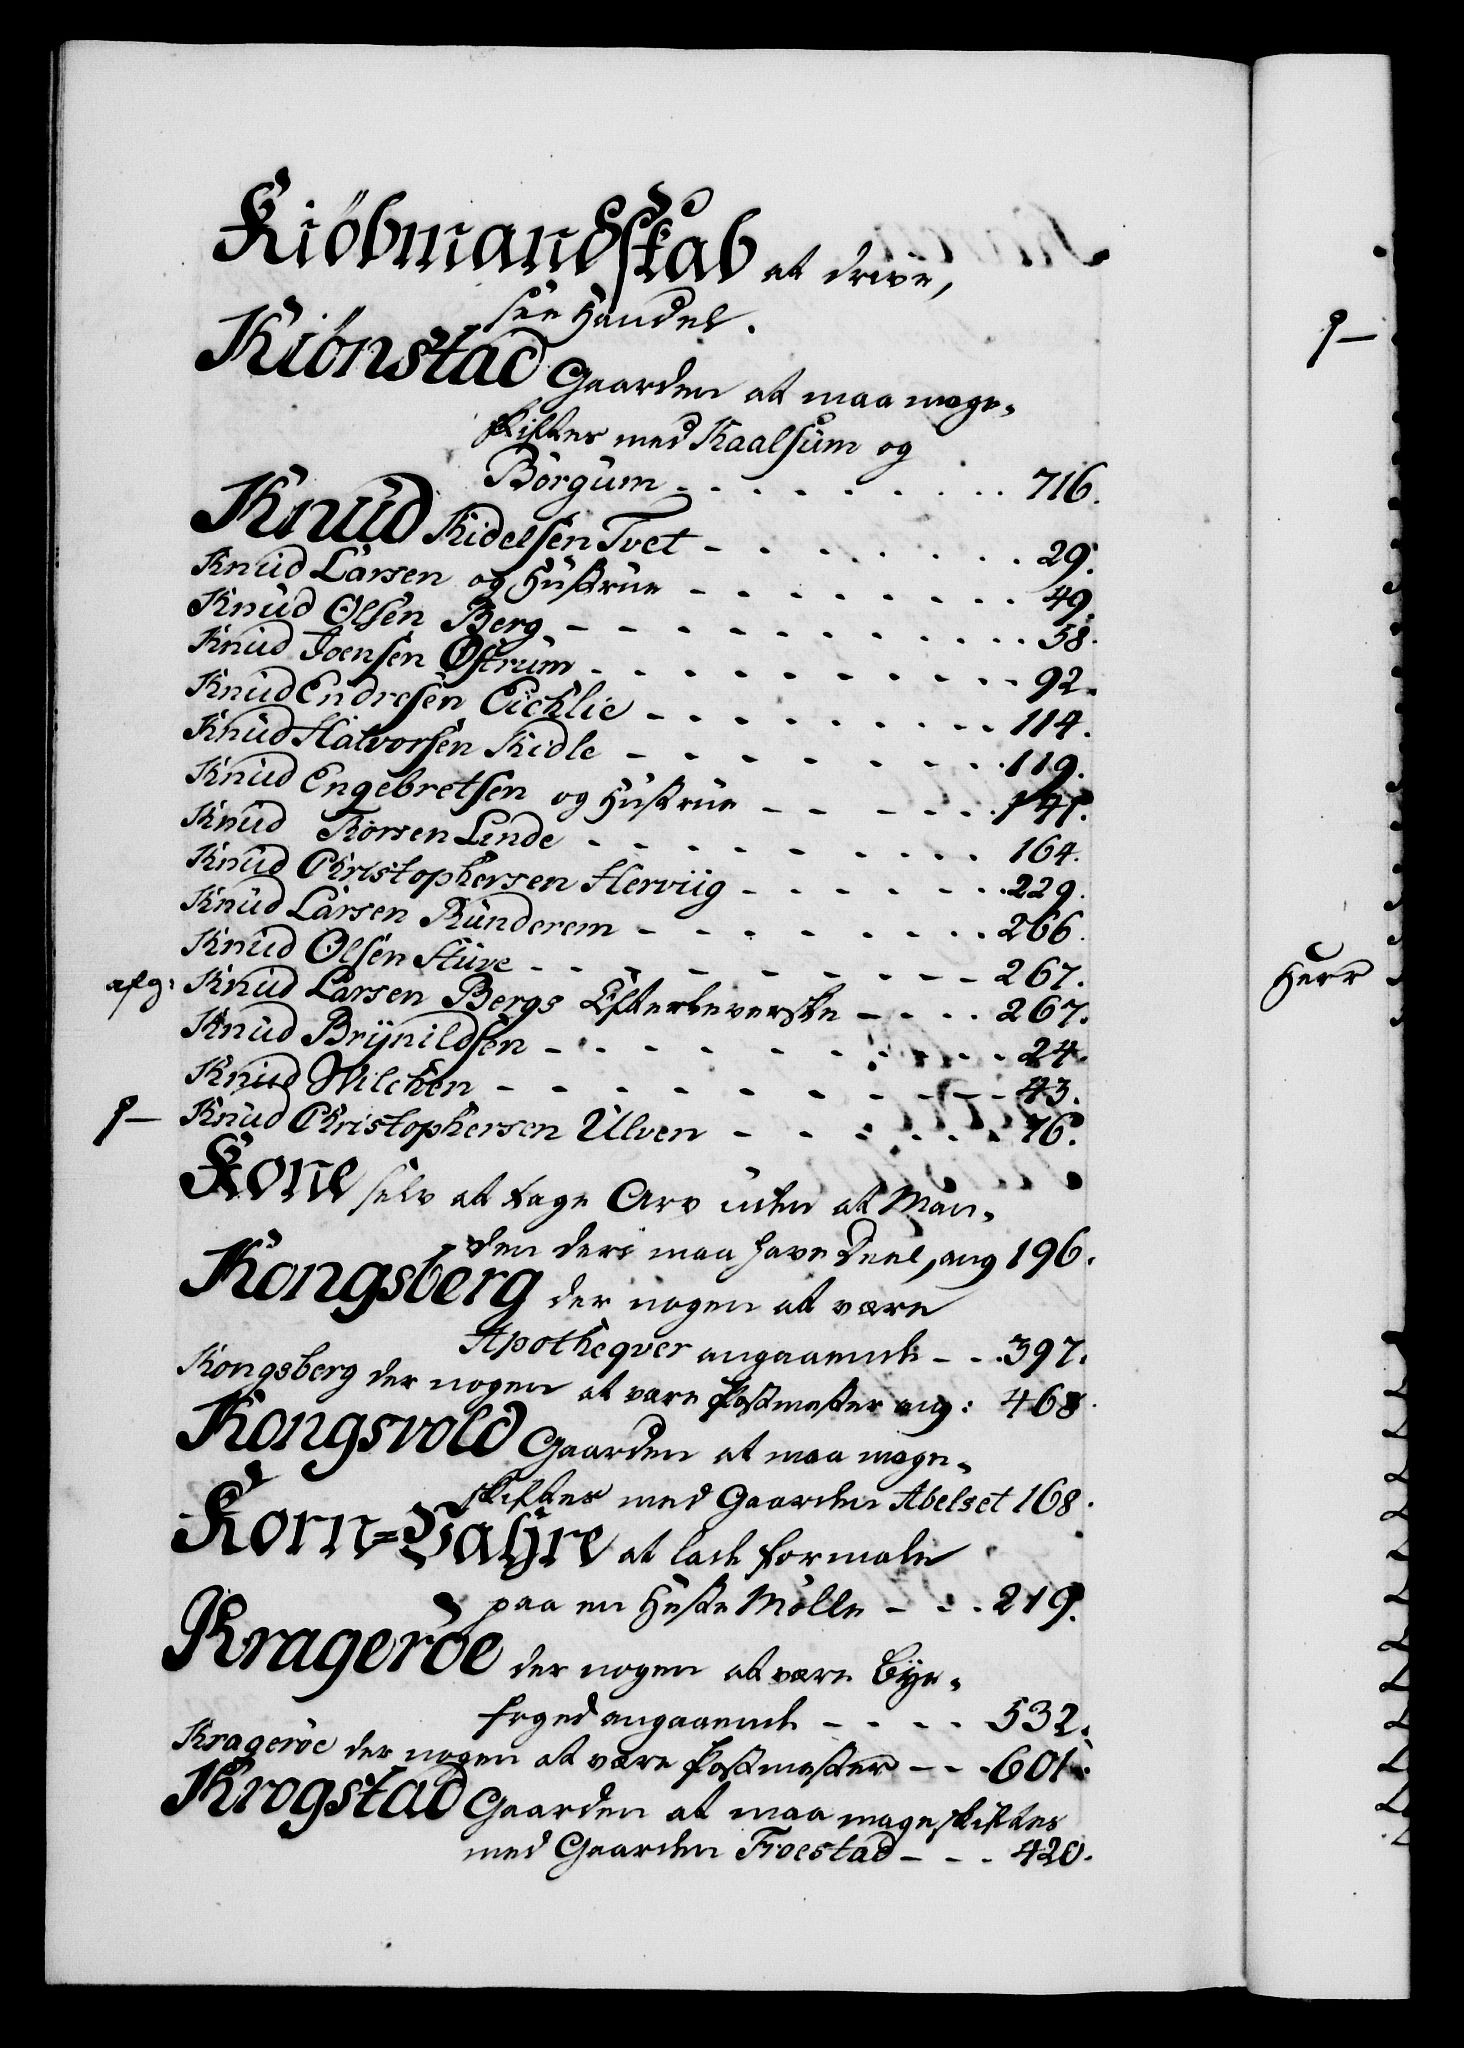 Kiöbmandskab at drive,
see Handel.
Kiönstad Gaarden at maa mage-
skiftes med Kaalsum og
Börgum - - - - - - - - 716.
Knud Kidelsen Tvet - - - - - - - 29.
Knud Larsen og Hustrue - - - - - - - 49.
Knud Olsen Berg - - - - - - - - - 58.
Knud Joensen Östrum - - - - - - - - 92.
Knud Endresen Eichlie - - - - - - - 114.
Knud Halvorsen Kidle - - - - - - - 119.
Knud Engebretsen og Hustrue - - - - - 141.
Knud Torsen Linde - - - - - - - - 164.
Knud Christophersen Herviig - - - - - - 229.
Knud Larsen Runderem - - - - - - - 266.
Knud Olsen Hüve - - - - - - - - - 267.
afg: Knud Larsen Bergs Efterleverske - - - - 267.
Knud Brÿnildsen - - - - - - - - - 24.
Knud Wilchen - - - - - - - - - - 43.
Knud Christophersen Ulven - - - - - - 76.
Kone selv at tage Arv uden at Man-
den deri maa have Deel, ang 196.
Kongsberg der nogen at være
Apothequer angaaende - - - 397.
Kongsberg der nogen at være Postmester ang: 468.
Kongsvold Gaarden at maa mage-
skiftes med Gaarden Abelset 168.
Korn=Vahre at lade formale
paa en Heste Mölle - - - 219.
Krageröe der nogen at være Bÿe-
foged angaaende - - - - 532.
Krageröe der nogen at være Postmester - - - 601.
Krogstad Gaarden at maa mageskiftes
med Gaarden Froestad - - - 420.
Herr